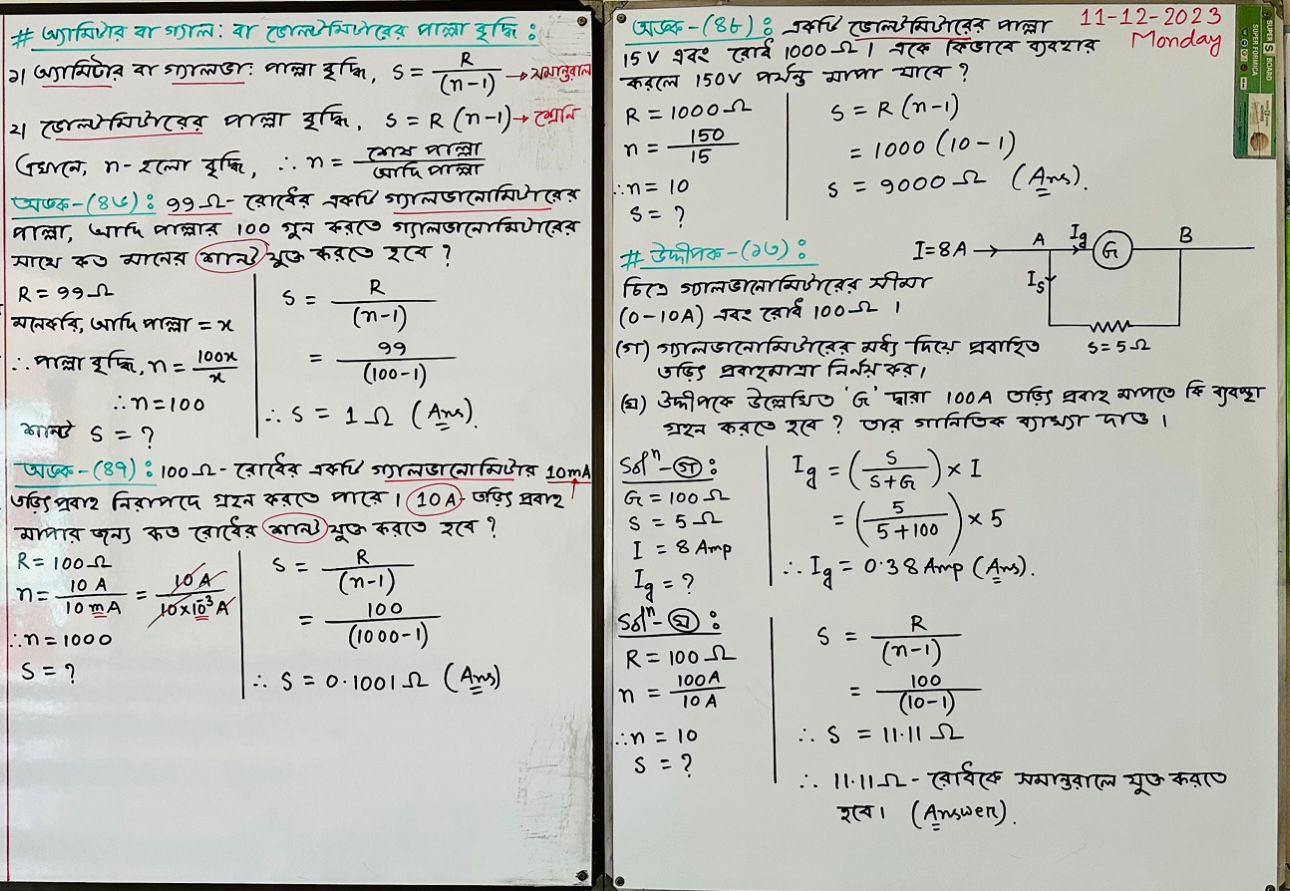 # অ্যামিটার বা গ্যাল: বা ভোল্টমিটারের পাল্লা বৃদ্ধি :
১) অ্যামিটার বা গ্যালভা: পাল্লা বৃদ্ধি, S = R/(n-1) → সমান্তরাল
২) ভোল্টমিটারের পাল্লা বৃদ্ধি, S = R (n-1) → শ্রেনি
এখানে, n - হলো বৃদ্ধি, ∴ n = শেষ পাল্লা/আদি পাল্লা
অংক-(৪৬) : 99 Ω - রোধের একটি গ্যালভানোমিটারের
পাল্লা, আদি পাল্লার 100 গুন করতে গ্যালভানোমিটারের
সাথে কত মানের শান্ট যুক্ত করতে হবে ?
R = 99 Ω
মনেকরি, আদি পাল্লা = x
∴ পাল্লা বৃদ্ধি, n = 100x/x
∴ n = 100
শান্ট S = ?
S = R/(n-1)
= 99/(100-1)
∴ S = 1 Ω (Ans).
অংক-(৪৭) : 100 Ω - রোধের একটি গ্যালভানোমিটার 10mA
তড়িৎ প্রবাহ নিরাপদে গ্রহন করতে পারে । 10 A তড়িৎ প্রবাহ
মাপার জন্য কত রোধের শান্ট যুক্ত করতে হবে ?
R = 100 Ω
n = 10 A/10 mA = 10 A/10×10⁻³ A
∴ n = 1000
S = ?
S = R/(n-1)
= 100/(1000-1)
∴ S = 0.1001 Ω (Ans)
11-12-2023
Monday
অংক-(৪৮) : একটি ভোল্টমিটারের পাল্লা
15V এবং রোধ 1000 Ω । একে কিভাবে ব্যবহার
করলে 150V পর্যন্ত মাপা যাবে ?
R = 1000 Ω
n = 150/15
∴ n = 10
S = ?
S = R (n-1)
= 1000 (10-1)
S = 9000 Ω (Ans).
# উদ্দীপক-(১৩) :
I = 8A → A Ig G B
Is
S = 5 Ω
চিত্রে গ্যালভানোমিটারের সীমা
(0-10A) এবং রোধ 100 Ω ।
(গ) গ্যালভানোমিটারের মধ্য দিয়ে প্রবাহিত
তড়িৎ প্রবাহমাত্রা নির্নয় কর।
(ঘ) উদ্দীপকে উল্লেখিত 'G' দ্বারা 100A তড়িৎ প্রবাহ মাপতে কি ব্যবস্থা
গ্রহন করতে হবে ? তার গানিতিক ব্যাখ্যা দাও ।
Solⁿ - গ :
G = 100 Ω
S = 5 Ω
I = 8 Amp
Ig = ?
Ig = (S/S+G) × I
= (5/5+100) × 5
∴ Ig = 0.38 Amp (Ans).
Solⁿ - ঘ :
R = 100 Ω
n = 100A/10 A
∴ n = 10
S = ?
S = R/(n-1)
= 100/(10-1)
∴ S = 11.11 Ω
∴ 11.11 Ω - রোধকে সমান্তরালে যুক্ত করতে
হবে। (Answer).
SUPER S BOARD
SUPER FORMICA